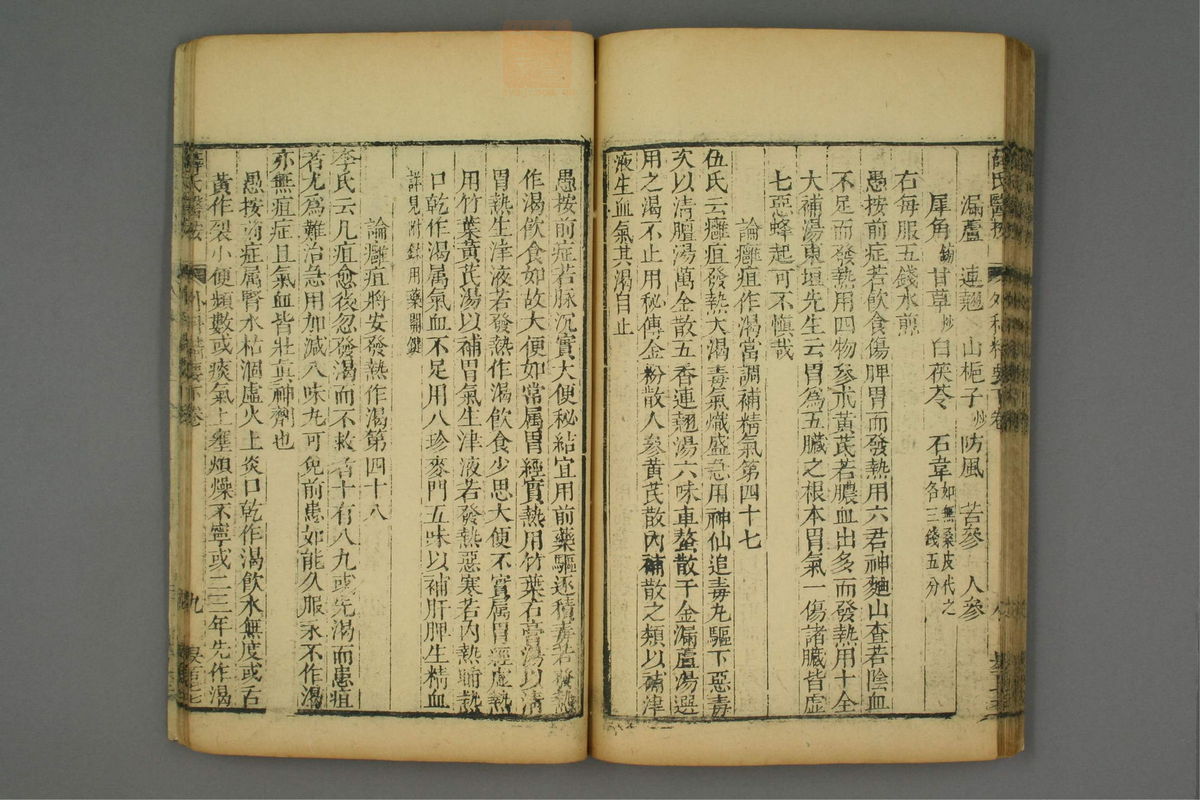 漏蘆 連翹 山梔子炒 防風 苦參 人參
犀角鎊 甘草炒 白茯苓 石韋如無桑皮代之各三錢五分
右每服五錢水煎
愚按前症若飲食傷脾胃而發熱用六君神麯山查若陰血
不足而發熱用四物參朮黃芪若膿血出多而發熱用十全
大補湯東垣先生云胃為五臟之根本胃氣一傷諸臟皆虛
七惡蜂起可不慎哉
論癰疽作渴當調補精氣第四十七
伍氏云癰疽發熱大渴毒氣熾盛急用神仙追毒丸驅下惡毒
次以清膻湯萬金散五香連翹湯六味車螯散千金漏蘆湯選
用之渴不止用秘傳金粉散人參黃芪散內補散之類以補津
液生血氣其渴自止
愚按前症若脉沉實大便秘結宜用前藥驅逐積毒若發熱
作渴飲食如故大便如常属胃經實熱用竹葉石膏湯以清
胃熱生津液若發熱作渴飲食少思大便不實属胃經虛熱
用竹葉黃芪湯以補胃氣生津液若發熱惡寒若內熱晡熱
口乾作渴属氣血不足用八珍麥門五味以補肝脾生精血
詳見附錄用藥關鍵
論癰疽將安發熱作渴第四十八
李氏云凡疽愈後忽發渴而不救者十有八九或先渴而患疽
者尤為難治急用加減八味丸可免前患如能久服永不作渴
亦無疽症且氣血皆壯眞神劑也
愚按前症属腎水枯涸虛火上炎口乾作渴飲水無度或舌
黃作裂小便頻數或痰氣上壅煩燥不寧或二三年先作渴
薛氏醫按 外科精要下卷 九